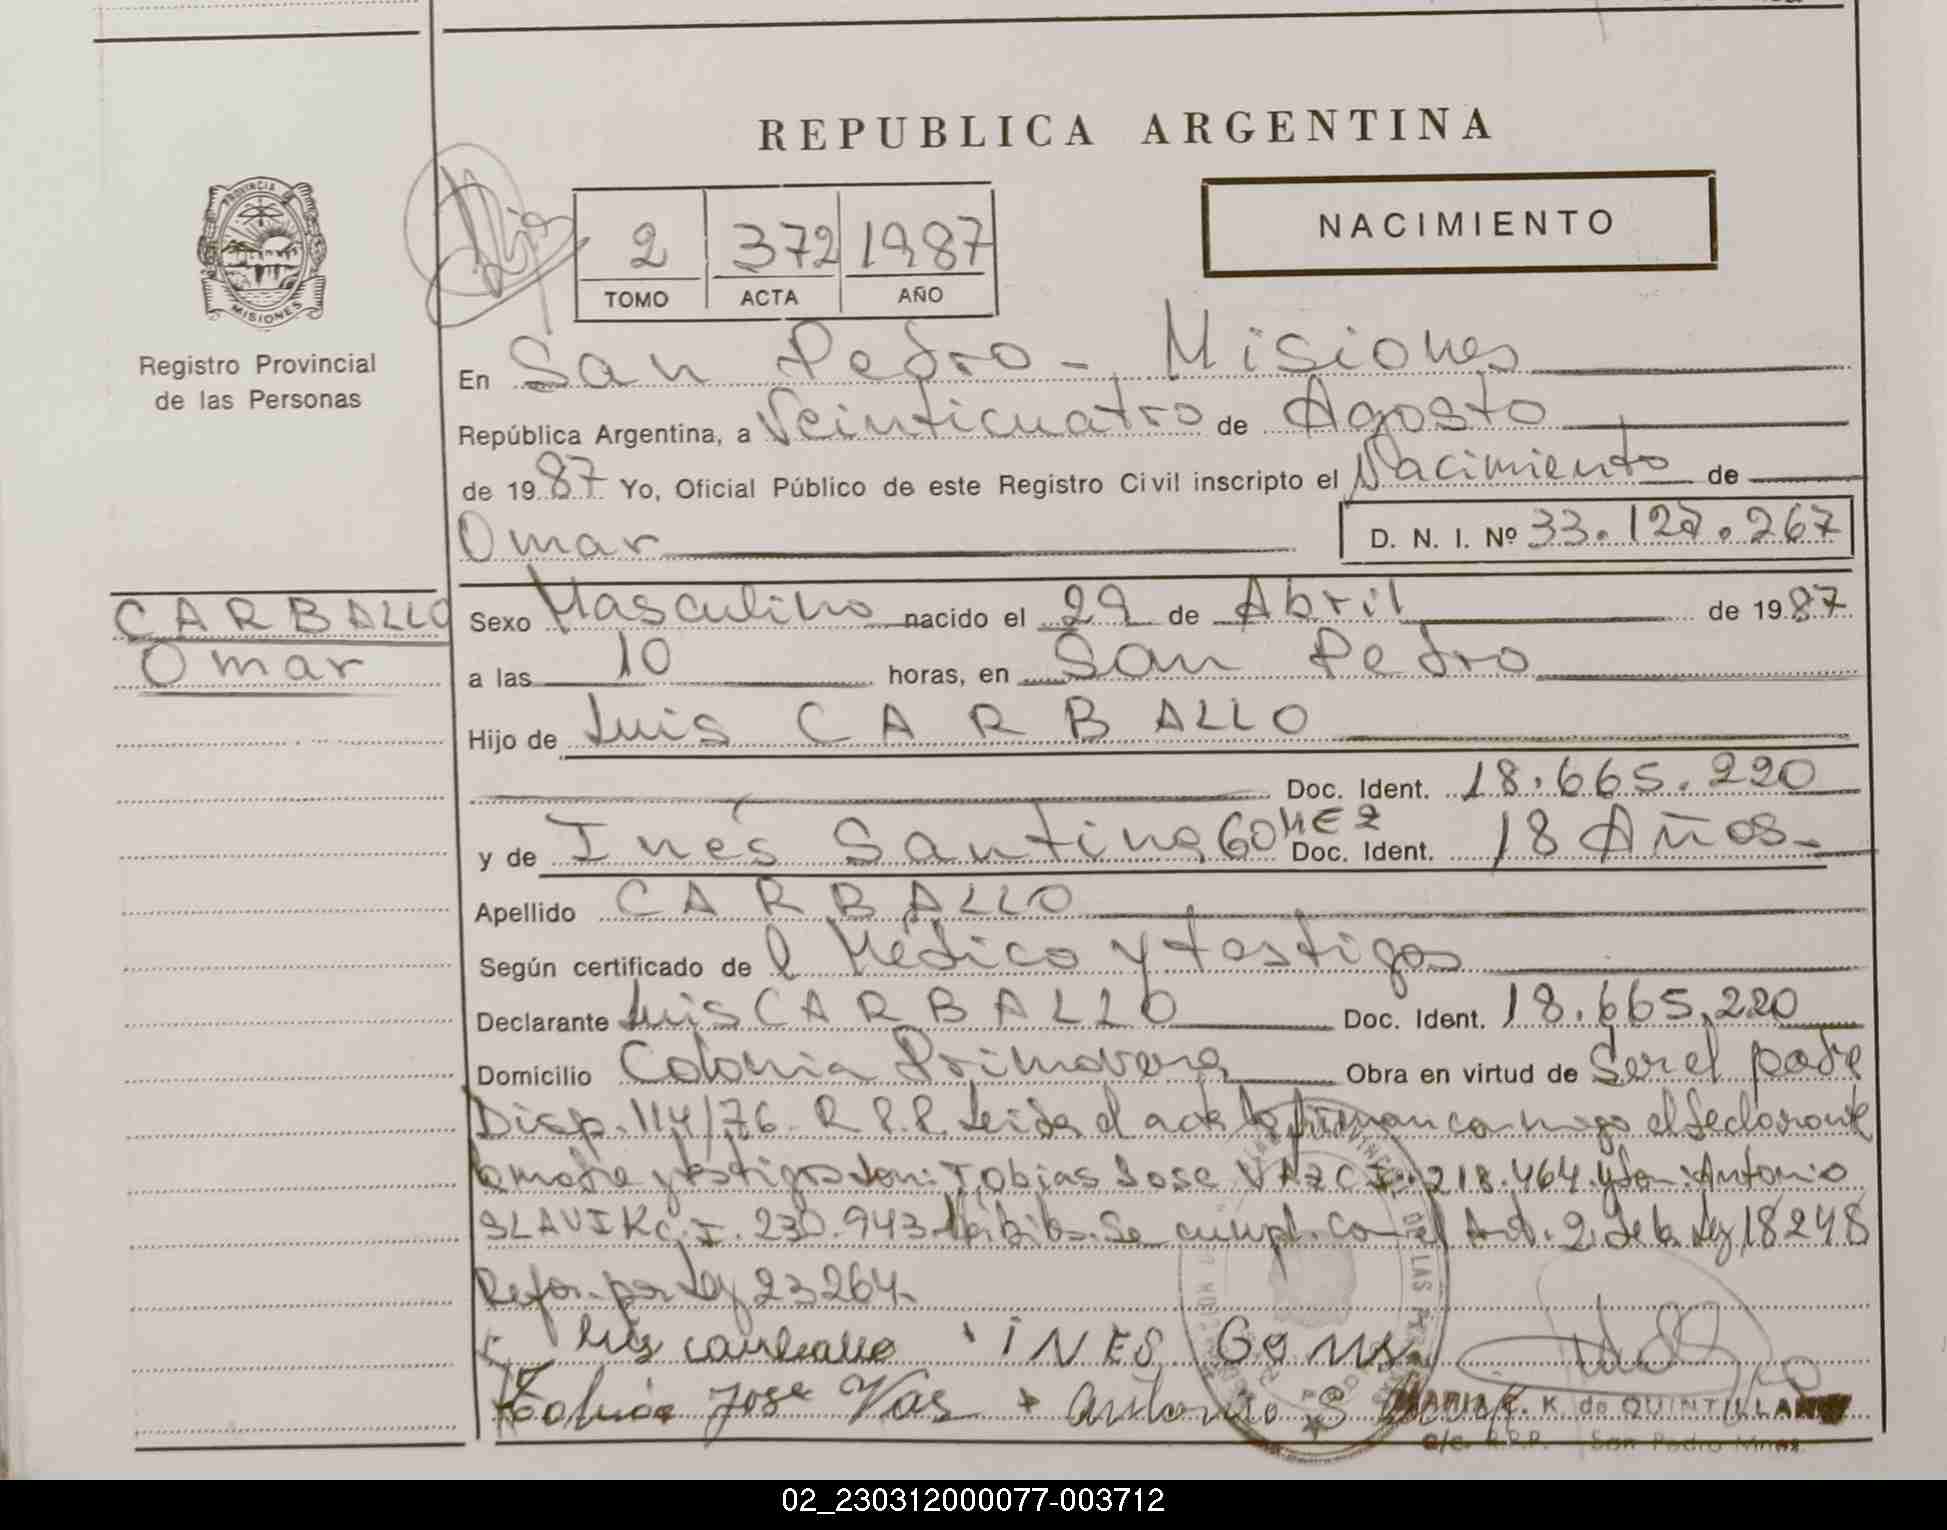 REPUBLICA ARGENTINA
PROVINCIA DE
MISIONES
Registro Provincial
de las Personas
2 372 1987
TOMO ACTA AÑO
NACIMIENTO
En San Pedro - Misiones
República Argentina, a Veinticuatro de Agosto
de 1987 Yo, Oficial Público de este Registro Civil inscripto el Nacimiento de
Omar D. N. I. Nº 33.127.267
CARBALLO
Omar
Sexo Masculino nacido el 29 de Abril de 1987
a las 10 horas, en San Pedro
Hijo de Luis CARBALLO
Doc. Ident. 18.665.220
y de Inés Santina GOMEZ Doc. Ident. 18 Años-
Apellido CARBALLO
Según certificado del Médico y testigos
Declarante Luis CARBALLO Doc. Ident. 18.665.220
Domicilio Colonia Primavera Obra en virtud de Ser el padre
Disp. 114/76 R.P.P. Leida el acta la firman conmigo el declarante
la madre y testigos don: Tobias Jose VAZ C.I. 218.464 y don: Antonio
SLAVIK C.I. 230.943 Se cumpl. con el Art. 2 de la Ley 18248
Refor. por Ley 23264-
Luis carballo INES Gomes
Tobias Jose Vas + Antonio S
MARIA E. K. de QUINTILLAN
a/c. R.P.P. San Pedro Mnes.
02_230312000077-003712